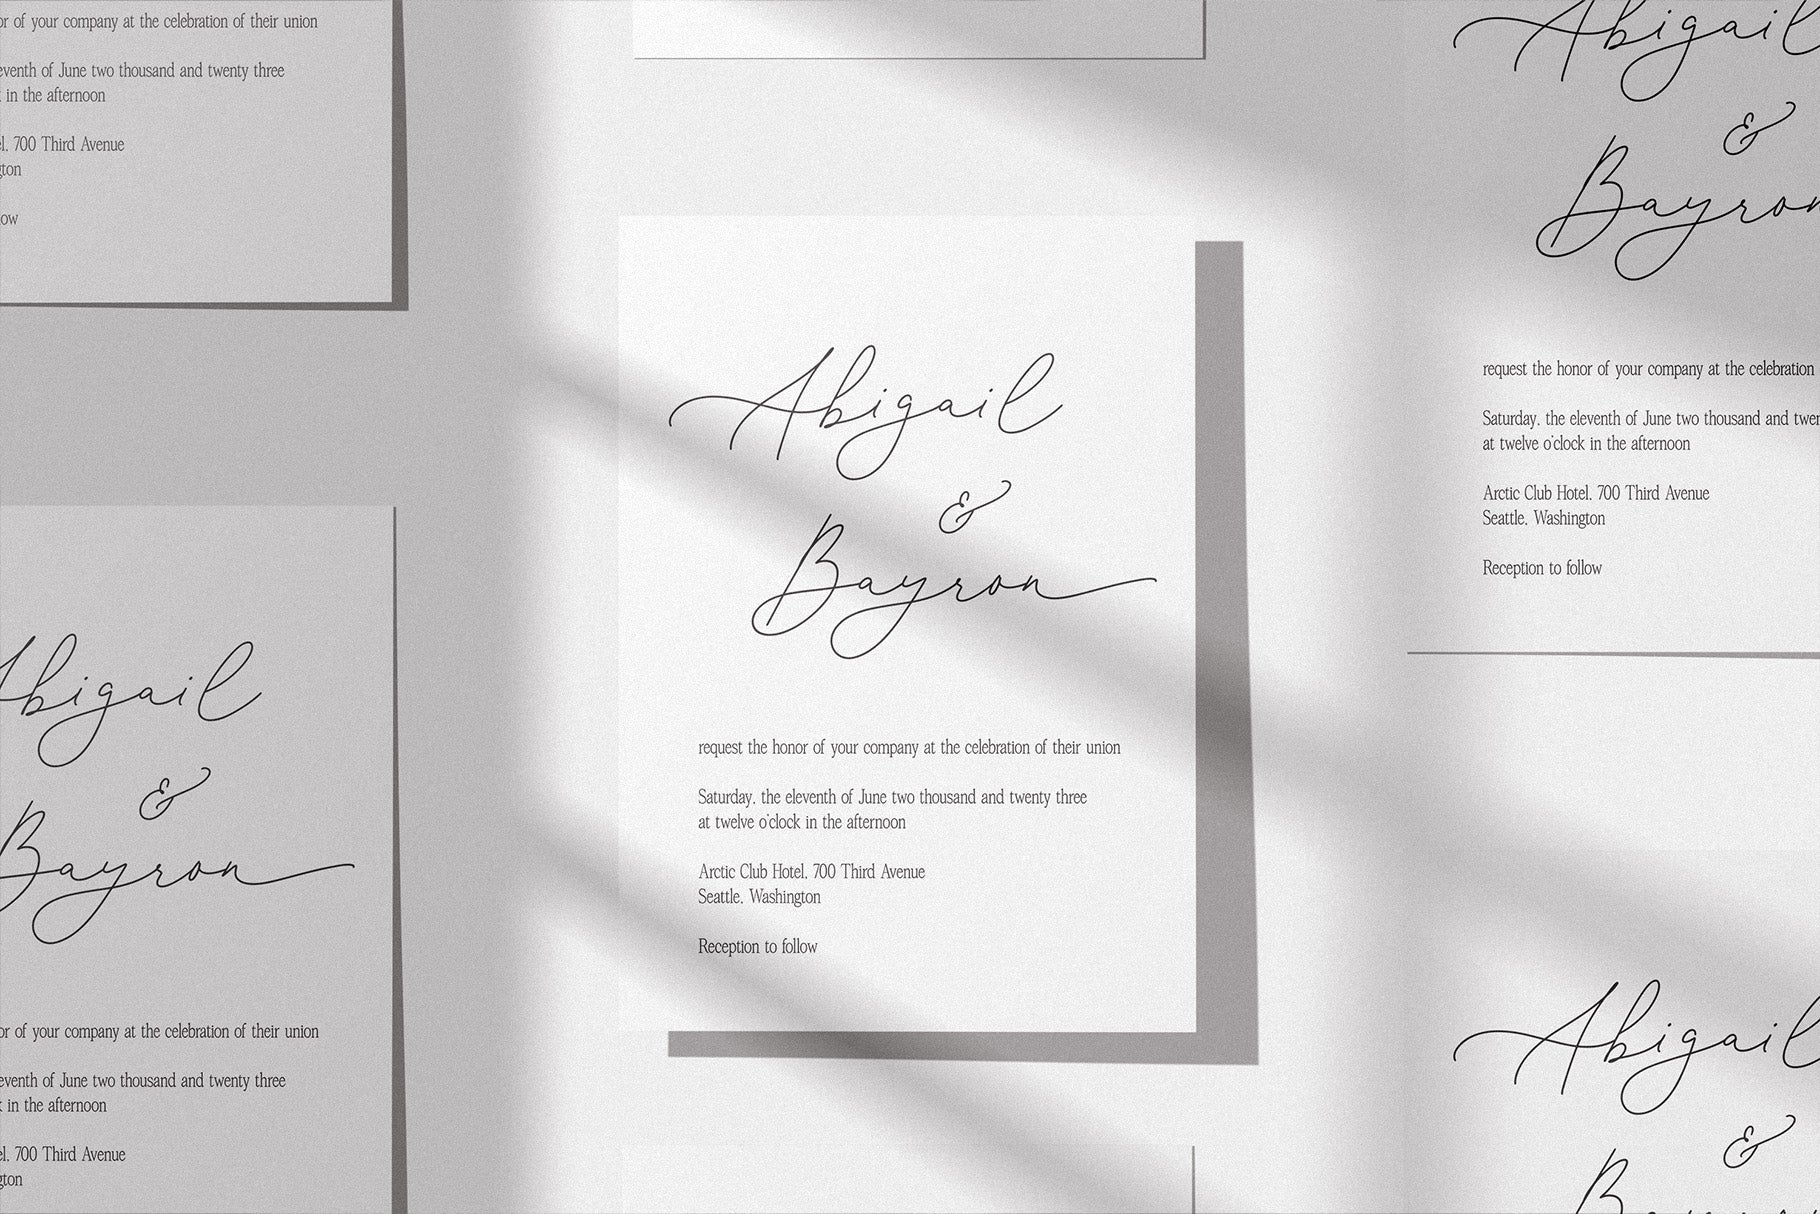 or of your company at the celebration of their union
eventh of June two thousand and twenty three
in the afternoon
700 Third Avenue
Abigail
&
Bayron
or of your company at the celebration of their union
eventh of June two thousand and twenty three
in the afternoon
700 Third Avenue
Abigail
&
Bayron
request the honor of your company at the celebration of their union
Saturday, the eleventh of June two thousand and twenty three
at twelve o'clock in the afternoon
Arctic Club Hotel, 700 Third Avenue
Seattle, Washington
Reception to follow
Abigail
&
Bayron
request the honor of your company at the celebration
Saturday, the eleventh of June two thousand and twen
at twelve o'clock in the afternoon
Arctic Club Hotel, 700 Third Avenue
Seattle, Washington
Reception to follow
Abigail
&